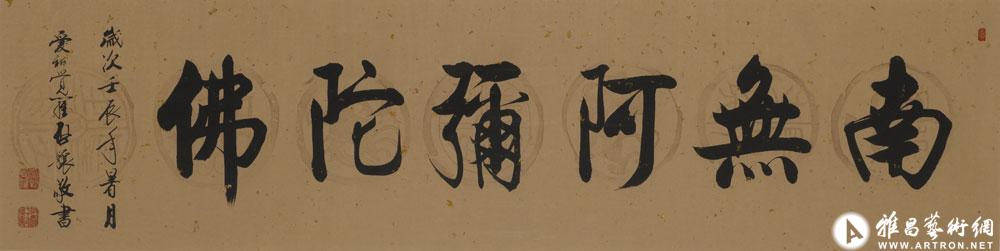 南無阿彌陀佛
歲次壬辰年暑月
愛新覺羅啟驤敬書
雅昌藝術網
WWW.ARTRON.NET